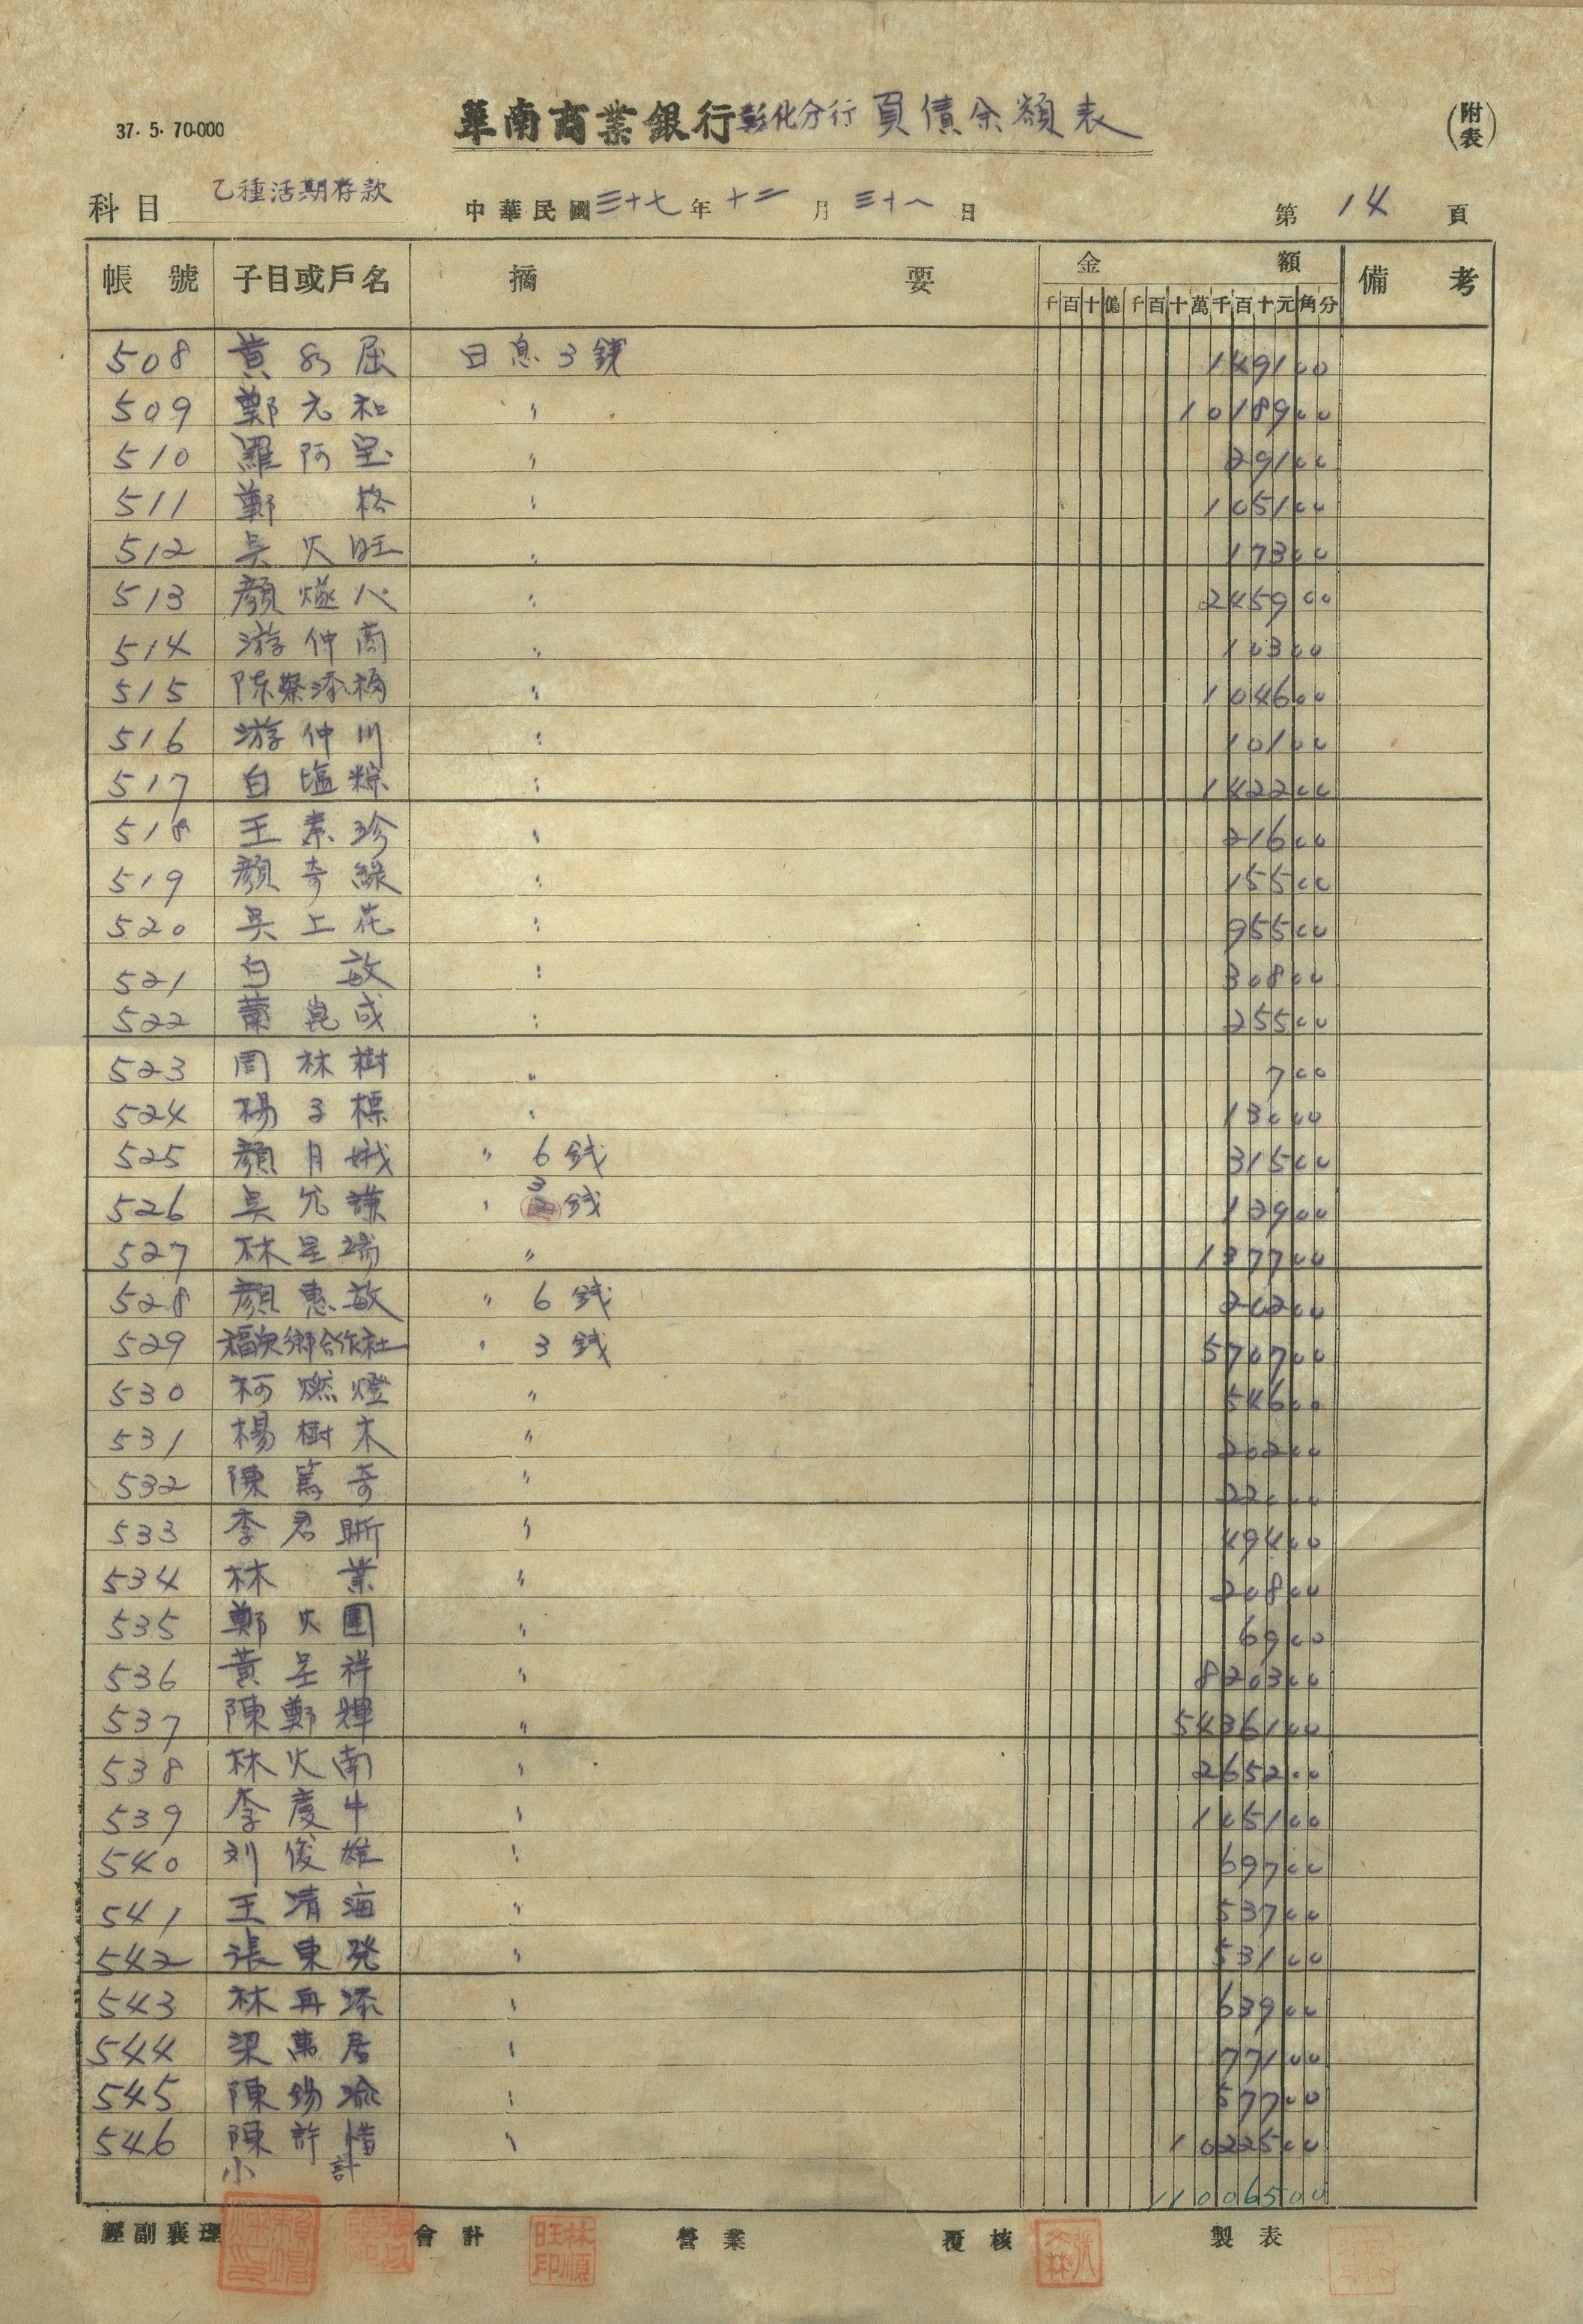 37. 5. 70.000
華南商業銀行彰化分行負債余額表
(附表)
科目 乙種活期存款 中華民國三十七年十二月三十一日 第14頁
帳號 子目或戶名 摘要 金額 備考
千百十億千百十萬千百十元角分
508 黃 屈 日息3錢 1491.00
509 鄭元和 〃 10189.00
510 羅阿宝 〃 291.00
511 鄭 松 〃 1051.00
512 吳火旺 〃 173.00
513 顏燧八 〃 2459.00
514 游仲商 〃 103.00
515 陈蔡添梅 〃 1046.00
516 游仲川 〃 101.00
517 白塩粽 〃 1422.00
518 王素珍 〃 216.00
519 顏奇綠 〃 155.00
520 吳上花 〃 955.00
521 白 敏 〃 308.00
522 葉崑成 〃 255.00
523 周林樹 〃 7.00
524 楊子標 〃 130.00
525 顏月娥 〃 6錢 315.00
526 吳允謙 〃 3錢 129.00
527 林呈瑞 〃 1377.00
528 顏惠敏 〃 6錢 202.00
529 福興鄉合作社 〃 3錢 5707.00
530 柯燃燈 〃 546.00
531 楊樹木 〃 202.00
532 陳篤奇 〃 220.00
533 李君晰 〃 494.00
534 林 業 〃 208.00
535 鄭火團 〃 69.00
536 黃呈祥 〃 8203.00
537 陳鄭輝 〃 54361.00
538 林火南 〃 2652.00
539 李慶牛 〃 1051.00
540 刘俊雄 〃 697.00
541 王清海 〃 537.00
542 張東発 〃 531.00
543 林再添 〃 639.00
544 梁萬居 〃 771.00
545 陳錫瑜 〃 577.00
546 陳許惜 〃 10225.00
小計 110065.00
經副襄理 會計 林順旺印 營業 覆核 張文林 製表